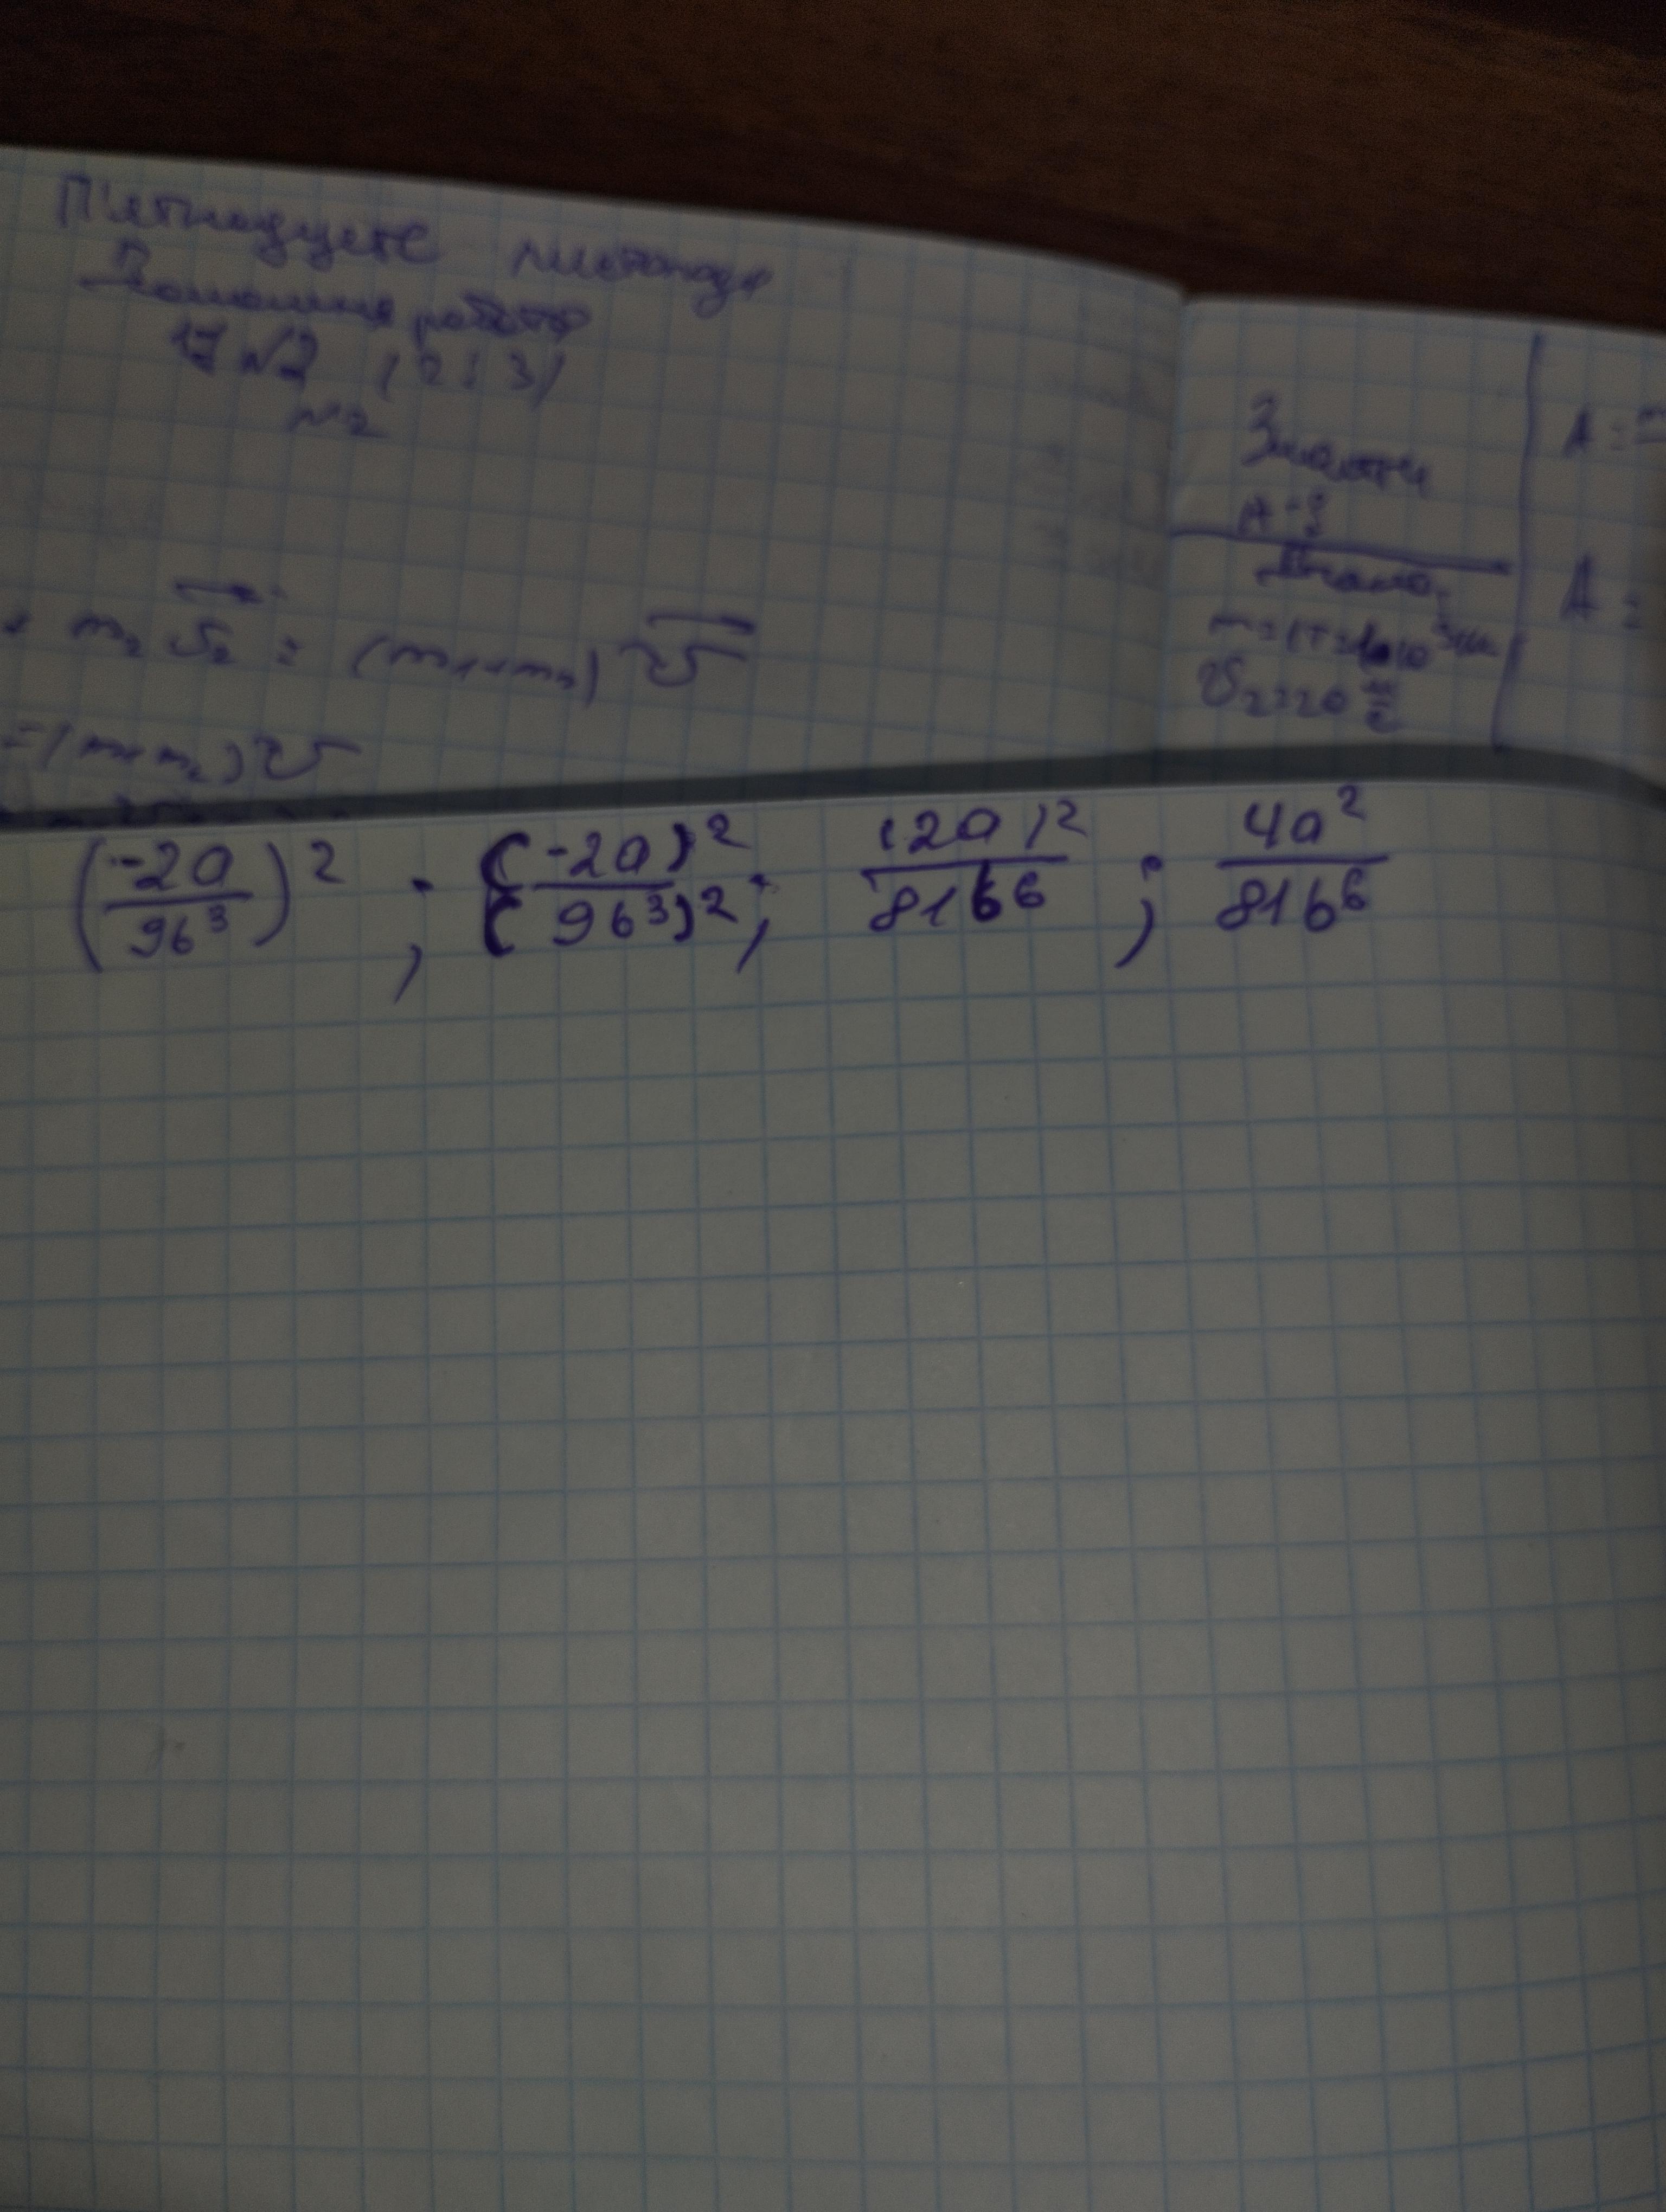 П'ятнадцяте листопада
Домашня робота
17 №2 (2; 3)
№2
+ m₂ v₂ = (m₁+m₂) v
Знайти
A - ?
A =
A =
m = 1т = 1·10³кг
v₂ = 20 м/с
(-2a/9b³)² ; (-2a)²/(9b³)² ; (2a)²/81b⁶ ; 4a²/81b⁶